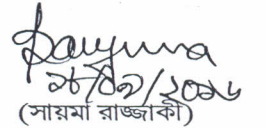 Sayma
২৮/০৯/২০১৬
(সায়মা রাজ্জাকী)